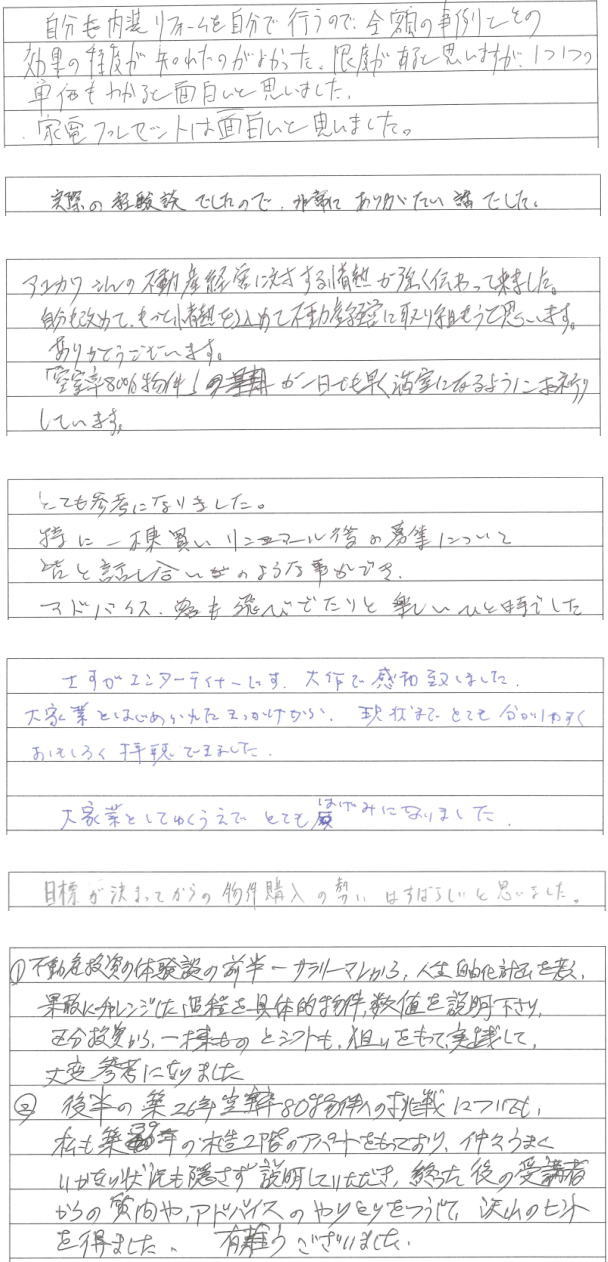 自分も内装リフォームを自分で行うので、金額の事例とその
効果の程度が知れたのがよかった。限度があると思いますが、1つ1つの
単価もわかると面白いと思いました。
家電プレゼントは面白いと思いました。
実際の経験談でしたので、非常にありがたい話でした。
さんの不動産経営に対する情熱が強く伝わって来ました。
自分も改めて、もっと情熱を込めて不動産経営に取り組もうと思います。
ありがとうございます。
「空室率80%物件」の が一日でも早く満室になるようにお祈り
しています。
とても参考になりました。
特に一棟買いリニューアル後の募集について
皆と話し合い のような事ができ、
アドバイス、 も飛びでたりと楽しいひと時でした
さすがエンターティナーです。大作で感動致しました。
大家業とはじめられたきっかけから、現状までとても分かりやすく
おもしろく拝聴できました。
大家業としてゆくうえでとてもはげみになりました。
目標が決まってからの物件購入の勢いはすばらしいと思いました。
①不動産投資の体験談の前半ーサラリーマンから、人生自由化計画を考え、
果敢にチャレンジした過程を具体的物件、数値を説明下さり、
区分投資から、一棟ものとシフトも、狙いをもって実践して、
大変参考になりました
② 後半の築26年空室率80%物件への挑戦についても、
私も築 年の木造2階のアパートをもっており、仲々うまく
いかない状況も隠さず説明していただき、終った後の受講者
からの質問や、アドバイスのやりとりをつうじて、沢山のヒント
を得ました。 有難うございました。